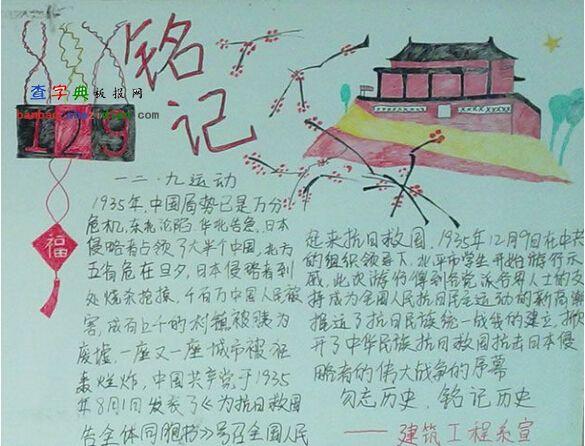 铭记
129
查字典板报网
福
一二·九运动
1935年,中国局势已是万分
危机,东北沦陷,华北告急,日本
侵略者占领了大半个中国,北方
五省危在旦夕,日本侵略者到
处烧杀抢掠,千百万中国人民被
害,成百上千的村镇被贱为
废墟,一座又一座城市被狂
轰烂炸,中国共产党于1935
年8月1日发表了《为抗日救国
告全体同胞书》号召全国人民
起来抗日救国,1935年12月9日在中共
的组织领导下,北平市学生开始游行示
威,此次游行得到各党派各界人士的支
持成为全国人民抗日民主运动的新高
推进了抗日民族统一战线的建立,掀
开了中华民族抗日救国抗击日本侵
略者的伟大战争的序幕
勿忘历史,铭记历史
——建筑工程系宣